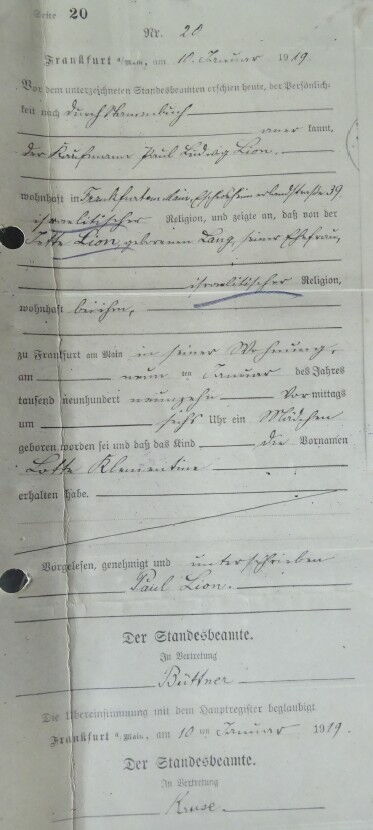 Seite 20
Nr. 20
Frankfurt a/Main, am 10. Januar 1919
Vor dem unterzeichneten Standesbeamten erschien heute, der Persönlich-
keit nach durch Stammbuch
aner kannt,
der Kaufmann Paul Ludwig Lion,
wohnhaft in Frankfurt am Main, Eschersheimerlandstraße 39
israelitischer Religion, und zeigte an, daß von der
Lion, geborenen Lang, seiner Ehefrau,
israelitischer Religion,
wohnhaft bei ihm,
zu Frankfurt am Main in seiner Wohnung,
am neun ten Januar des Jahres
tausend neunhundert neunzehn Vor mittags
um sechs Uhr ein Mädchen
geboren worden sei und daß das Kind die Vornamen
Lotte Klementine
erhalten habe.
Vorgelesen, genehmigt und unterschrieben
Paul Lion.
Der Standesbeamte.
In Vertretung
Büttner
Die Übereinstimmung mit dem Hauptregister beglaubigt
Frankfurt a. Main, am 10 ten Januar 1919.
Der Standesbeamte.
In Vertretung
Kruse.